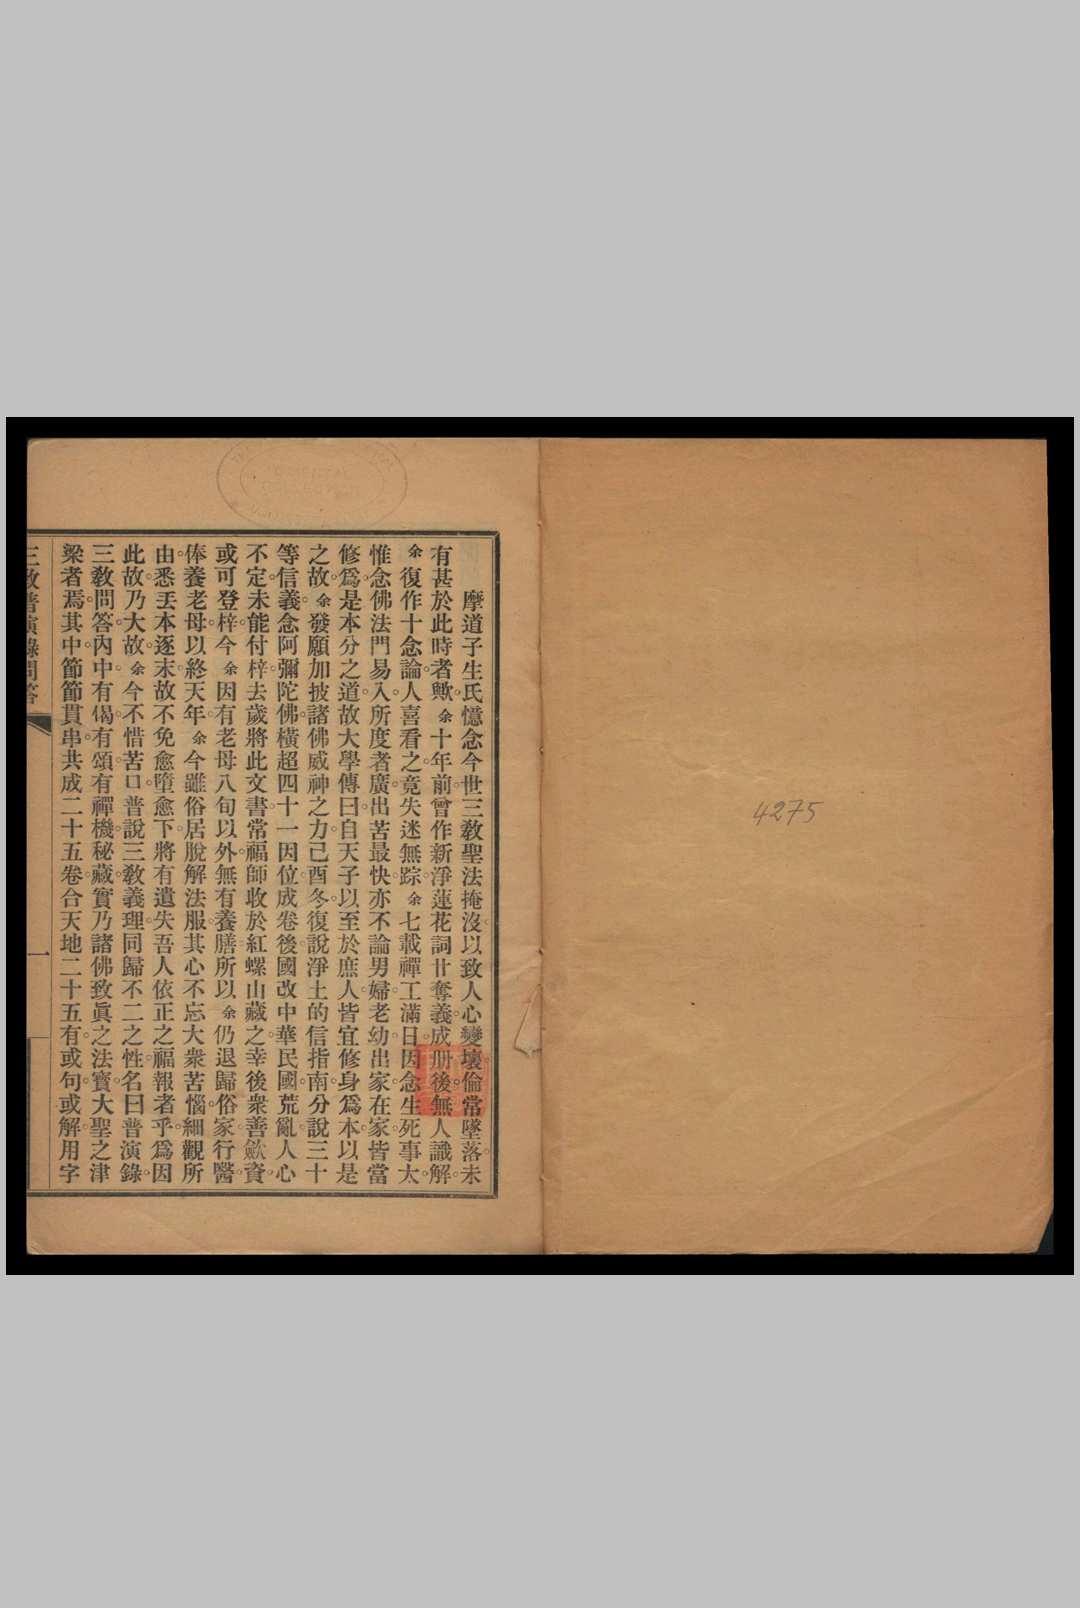 4275
摩道子生氏憶念今世三敎聖法掩沒以致人心變壞倫常墜落未
有甚於此時者歟。余十年前。曾作新淨蓮花詞廿奪義成册後無人識解
余復作十念論。人喜看之。竟失迷無踪。余七載禪工滿日。因念生死事太
惟念佛法門易入。所度者廣。出苦最快。亦不論男婦老幼出家在家。皆當
修爲。是本分之道。故大學傳曰。自天子以至於庶人。皆宜修身爲本。以是
之故。余發願加披諸佛威神之力。己酉冬。復說淨土的信指南。分說三十
等信義。念阿彌陀佛。橫超四十一因位成卷。後國改中華民國。荒亂。人心
不定。未能付梓。去歲將此文書。常福師收於紅螺山藏之。幸後衆善歛資。
或可登梓。今余因有老母八旬以外。無有養膳。所以余仍退歸俗家行醫。
俸養老母以終天年。余今雖俗居。脫解法服。其心不忘大衆苦惱。細觀所
由。悉丟本逐末。故不免愈墮愈下。將有遺失吾人依正之福報者乎。爲因
此故。乃大故。余今不惜苦口。普說三敎義理。同歸不二之性。名曰普演錄。
三敎問答。內中有偈。有頌。有禪機。秘藏。實乃諸佛致眞之法寶。大聖之津
梁者焉。其中節節貫串。共成二十五卷。合天地二十五有。或句。或解。用字
三敎普演錄問答
一